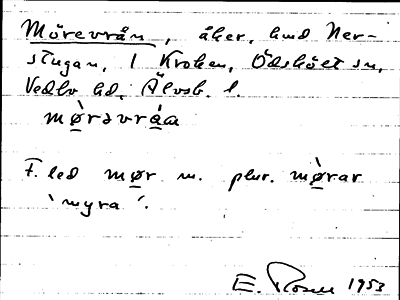 Mörevrån, åker, hmd Ner-
stugan, 1 Kroken, Ödskölt sn,
Vedbo hd, Älvsb. l.
mø̀rəvråa
F. led mør m. plur. mø̀rar
'myra'.
E. Rosen 1953